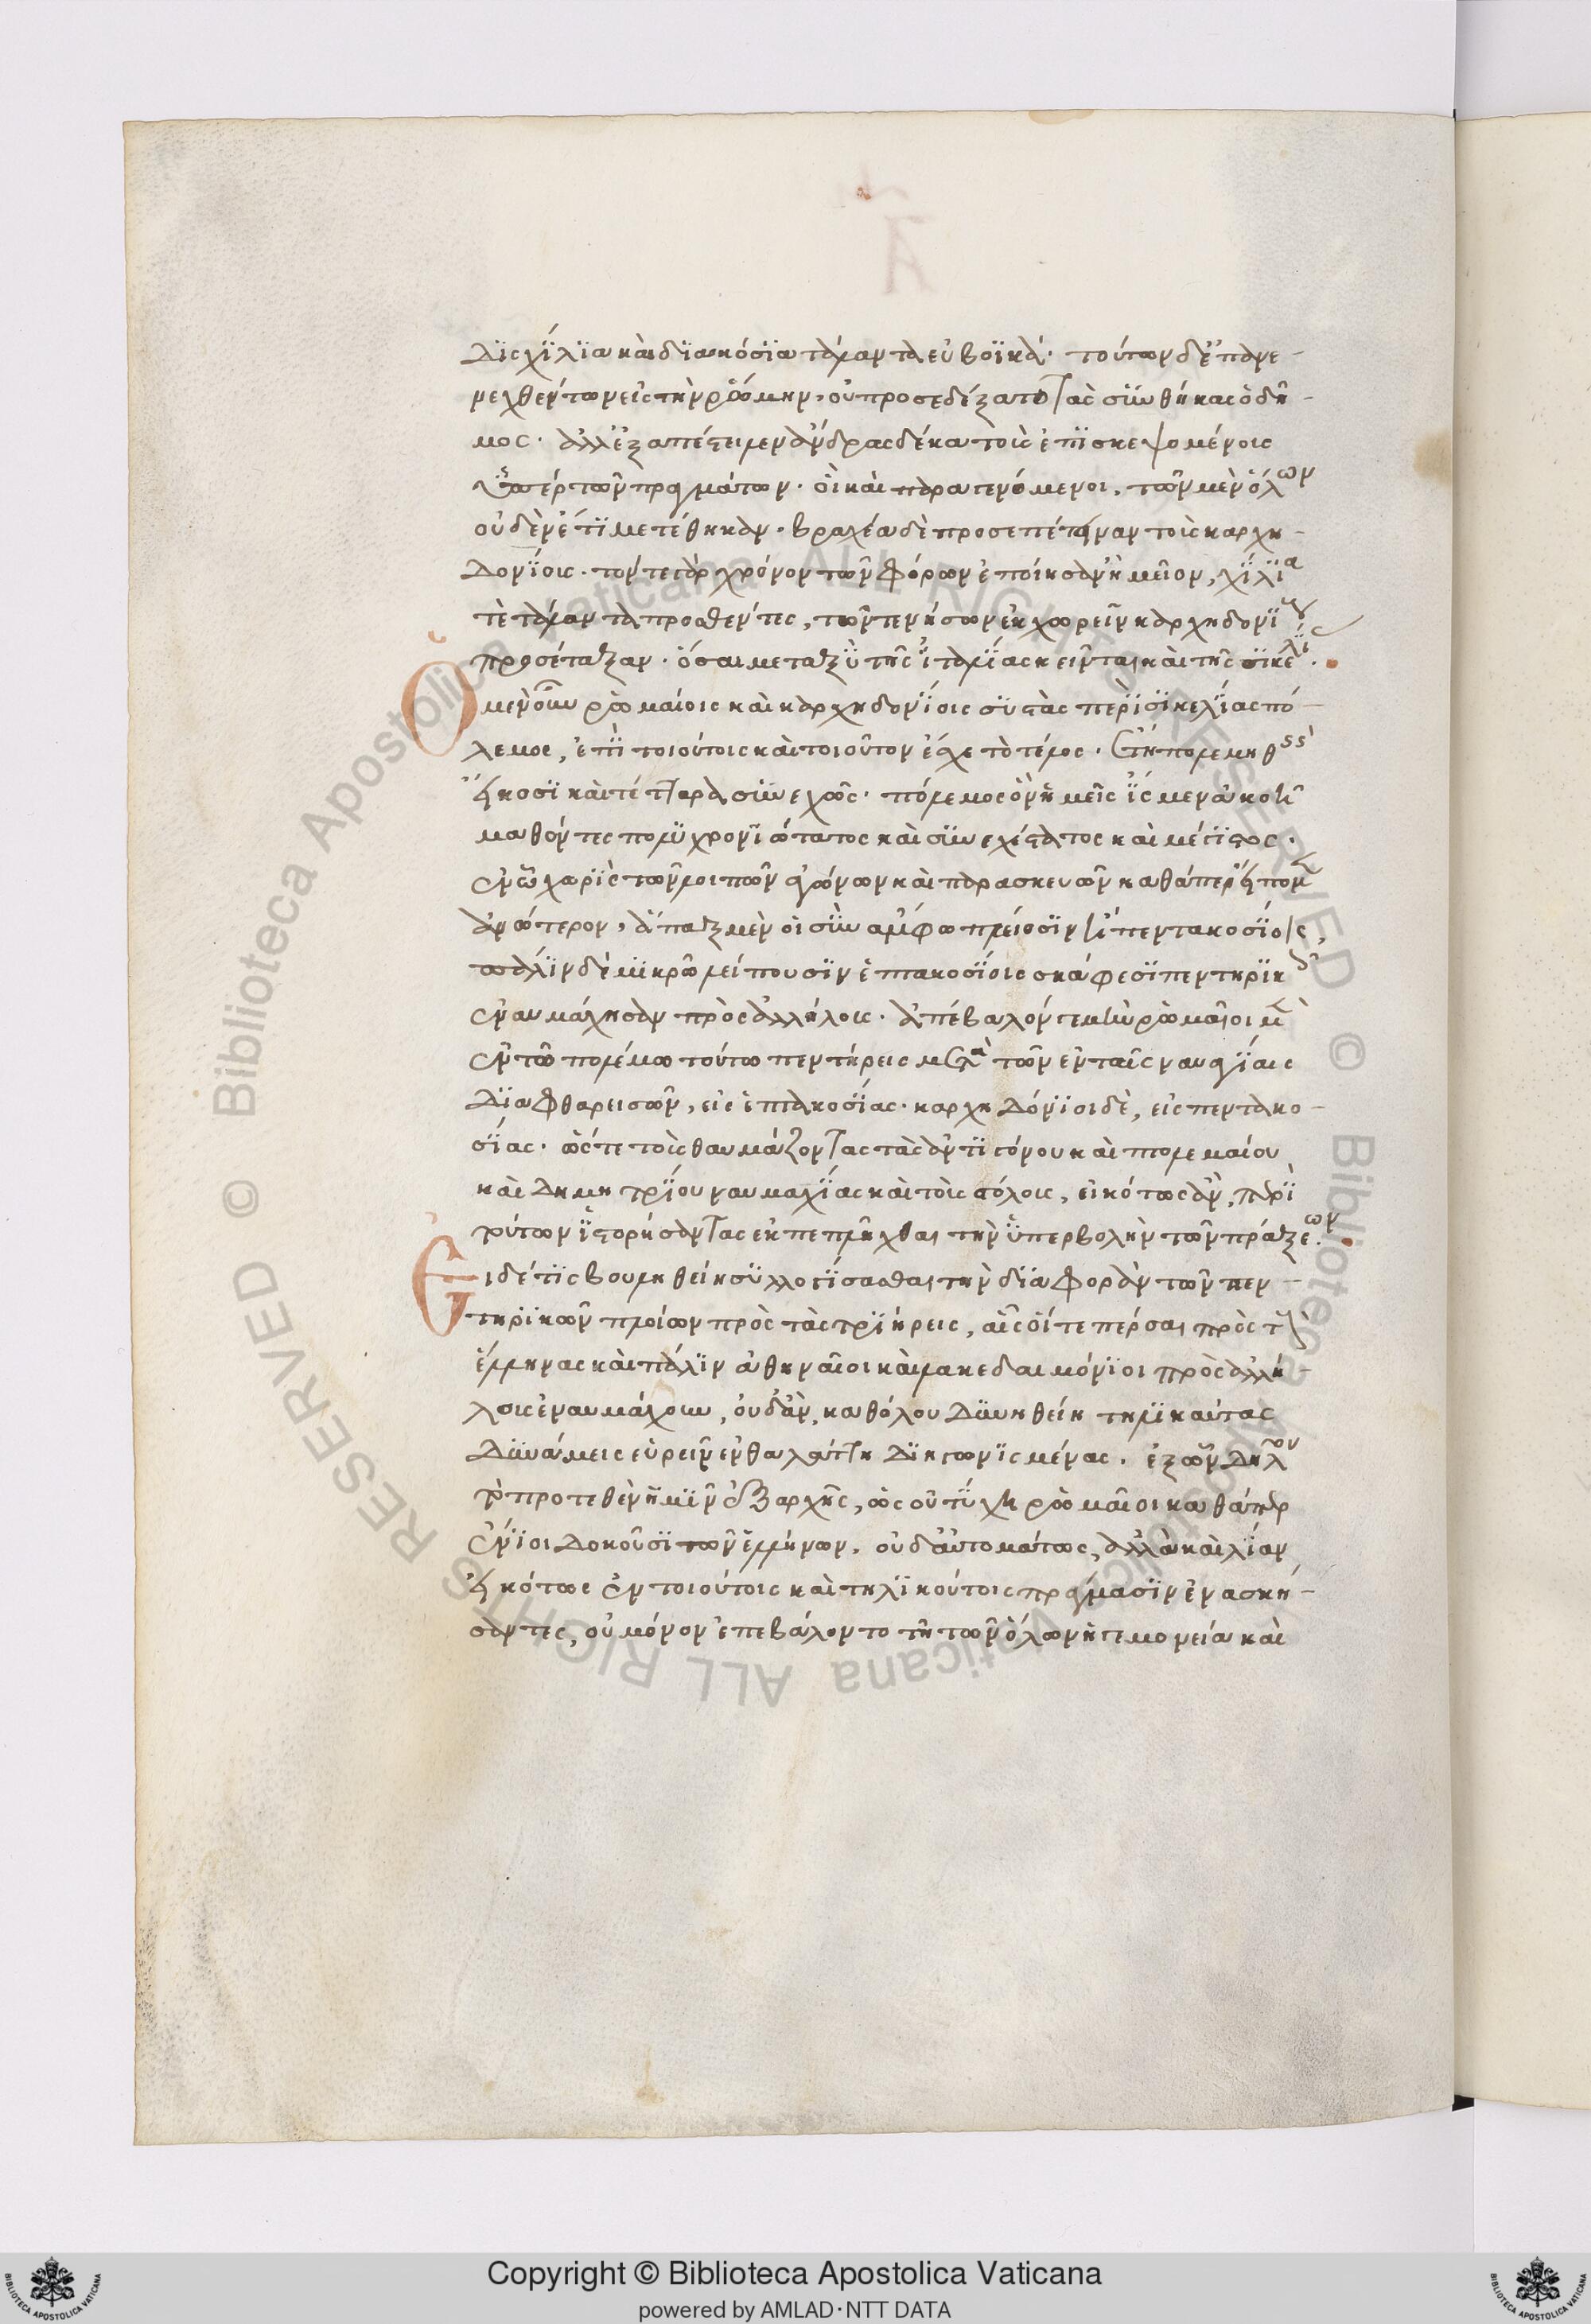 δισχίλια καὶ διακόσια τάλαντα εὐβοϊκά· τούτων δ' ἐπανε-
νεχθέντων εἰς τὴν ῥώμην, οὐ προσεδέξατο τὰς συνθήκας ὁ δῆ-
μος· ἀλλ' ἐξαπέστειλεν ἄνδρας δέκα τοὺς ἐπισκεψομένους
ὑπὲρ τῶν πραγμάτων· οἳ καὶ παραγενόμενοι, τῶν μὲν ὅλων
οὐδὲν ἔτι μετέθηκαν· βραχέα δὲ προσεπέτειναν τοὺς καρχη-
δονίους· τόν τε γὰρ χρόνον τῶν φόρων ἐποίησαν ἥμισον, χίλια
τε τάλαντα προσθέντες, τῶν τε νήσων ἐκχωρεῖν καρχηδονίους
προσέταξαν· ὅσαι μεταξὺ τῆς ἰταλίας κεῖνται καὶ τῆς σικελίας.
Ὁ μὲν οὖν ῥωμαίοις καὶ καρχηδονίοις συστὰς περὶ σικελίας πό-
λεμος, ἐπὶ τοιούτοις καὶ τοιοῦτον ἔσχε τὸ τέλος· ἔτη πολεμηθεὶς
εἴκοσι καὶ τέτταρα συνεχῶς· πόλεμος ὧν ἡμεῖς ἴσμεν ἀκοῇ
μαθόντες πολυχρονιώτατος καὶ συνεχέστατος καὶ μέγιστος·
ἐν ᾧ χωρὶς τῶν λοιπῶν ἀγώνων καὶ παρασκευῶν καθάπερ εἴπομεν
ἀνώτερον, ἅπαξ μὲν οἱ συνάμφω πλείοσιν ἢ πεντακοσίοις,
πάλιν δὲ μικρῷ λείπουσιν ἑπτακοσίοις σκάφεσι πεντηρικοῖς
ἐναυμάχησαν πρὸς ἀλλήλους· ἀπέβαλόν γε μὴν ῥωμαῖοι μὲν
ἐν τῷ πολέμῳ τούτῳ πεντήρεις μετὰ τῶν ἐν ταῖς ναυαγίαις
διαφθαρεισῶν, εἰς ἑπτακοσίας· καρχηδόνιοι δὲ, εἰς πεντακο-
σίας· ὥστε τοὺς θαυμάζοντας τὰς ἀντιγόνου καὶ πτολεμαίου
καὶ δημητρίου ναυμαχίας καὶ τοὺς στόλους, εἰκότως ἂν, περὶ
τούτων ἱστορήσαντας ἐκπεπλῆχθαι τὴν ὑπερβολὴν τῶν πράξεων.
Εἰ δέ τις βουληθείη συλλογίσασθαι τὴν διαφορὰν τῶν πεν-
τηρικῶν πλοίων πρὸς τὰς τριήρεις, αἷς οἵ τε πέρσαι πρὸς τοὺς
ἕλληνας καὶ πάλιν ἀθηναῖοι καὶ λακεδαιμόνιοι πρὸς ἀλλή-
λους ἐναυμάχουν, οὐδ' ἂν, καθόλου δυνηθείη τηλικαύτας
δυνάμεις εὑρεῖν ἐν θαλάττῃ διηγωνισμένας. ἐξ ὧν δῆλον
τὸ προτεθὲν ἡμῖν ἐξ ἀρχῆς, ὡς οὐ τύχῃ ῥωμαῖοι καθάπερ
ἔνιοι δοκοῦσι τῶν ἑλλήνων, οὐδ' αὐτομάτως, ἀλλὰ καὶ λίαν
εἰκότως ἐν τοιούτοις καὶ τηλικούτοις πράγμασιν ἐνασκή-
σαντες, οὐ μόνον ἐπεβάλοντο τῇ τῶν ὅλων ἡγεμονείᾳ καὶ
Copyright © Biblioteca Apostolica Vaticana
powered by AMLAD·NTT DATA